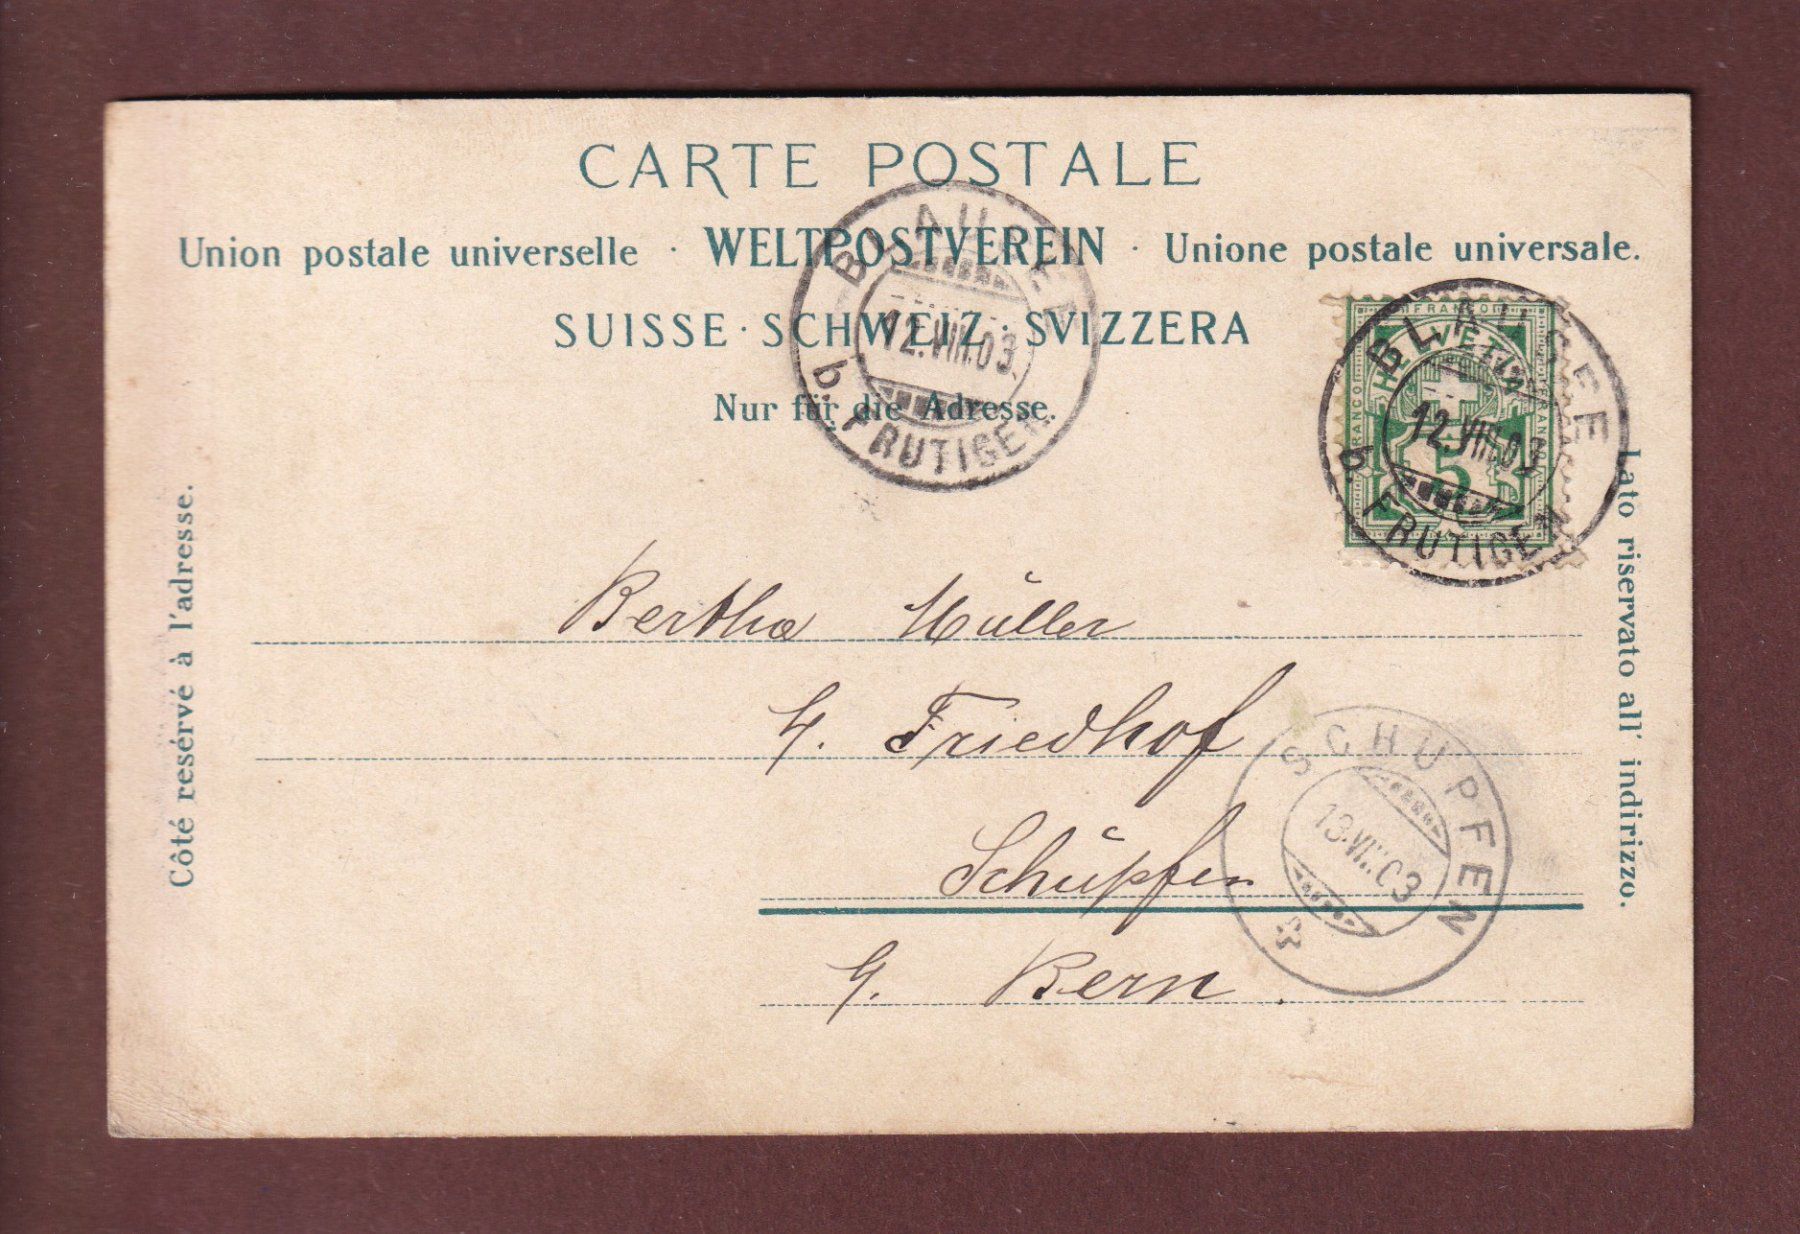 CARTE POSTALE
Union postale universelle · WELTPOSTVEREIN · Unione postale universale.
SUISSE · SCHWEIZ · SVIZZERA
Nur für die Adresse.
BLAUSEE
12.VIII.03
b. FRUTIGEN
FRANCO
HELVETIA
5
BLAUSEE
12.VIII.03
b. FRUTIGEN
Côté resérvé à l'adresse.
Lato riservato all' indirizzo.
Bertha Müller
Friedhof
Schüpfen
Bern.
SCHÜPFEN
13.VIII.03